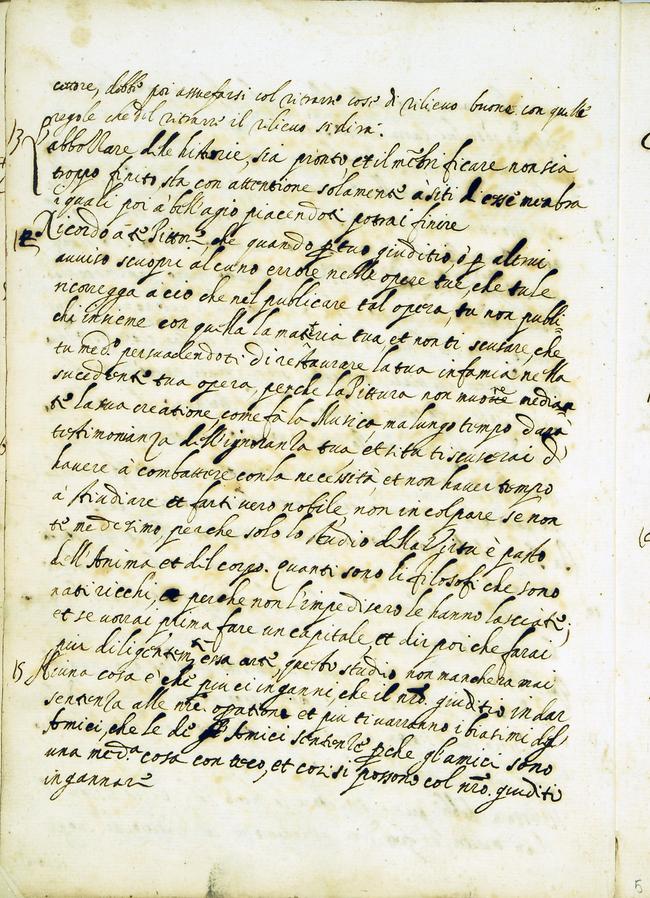 cettore, debbe poi assuefarsi col ritrarre cose di rilievo buone con quelle
regole che del ritrarre il rilievo si dira.
13 L'abbozzare delle historie, sia pronto et il mēbrificare non sia
troppo finito sta con attentione solamente à siti di esse membra
i quali poi à bell'agio piacendoti potrai finire
14 Ricordo a te Pittore, che quando ꝑ tuo giuditio, ò ꝑ altrui
avviso scuopri alcuno errore nelle opere tue, che tu le
ricorregga acio che nel publicare tal opera, tu non publi-
chi insieme con quella la materia tua et non ti scusare, che
tu med.º persuadendoti di restaurare la tua infamia nella
succedente tua opera, perche la Pittura non muore median
te la sua creatione come fà la Musica, ma lungo tempo darà
testimonianza dell'ignoranza tua, et si tu ti scuserai d'
havere à combattere con la necessità, et non haver tempo
à studiare et farti vero nobile, non incolpare se non
te medesimo, perche solo lo studio della Virtu è pasto
dell'Anima et del corpo. quanti sono li filosofi che sono
nati ricchi, et perche non l'impedisero le hanno lasciate;
et se vorrai prima fare un capitale, et dir poi che farai
piu diligentemte essa arte, questo studio non manchera mai
15 Alcuna cosa è che piu ci inganni, che il nrō. giuditio in dar
sentenza alle nrē operationi et piu ti varranno i biasimi del
Amici, che le de Amici sentenze ꝑche gl'amici sono
una med.ª cosa con teco, et cosi si possono col nrō. giuditio
ingannare
5